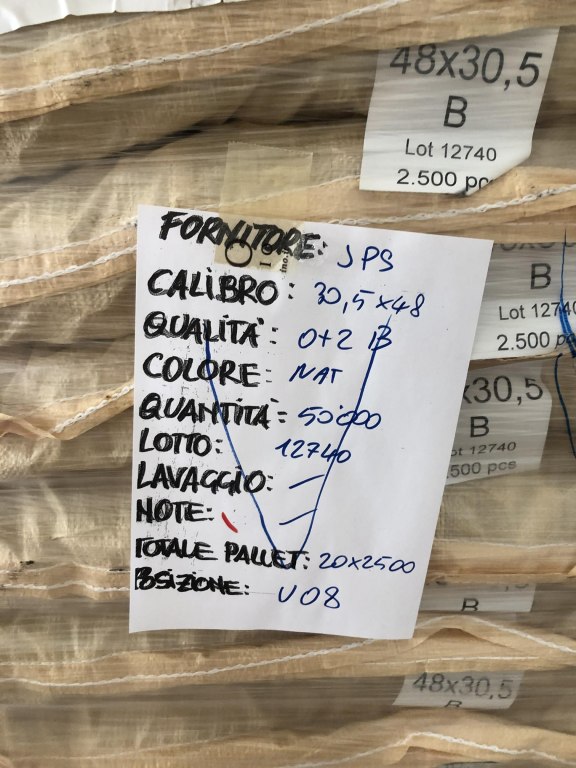 48x30,5
B
Lot 12740
2.500 pc
FORNITORE: JPS
CALIBRO: 30,5x48
QUALITÀ: 0+2 B
COLORE: NAT
QUANTITÀ: 50'000
LOTTO: 12740
LAVAGGIO:
NOTE:
TOTALE PALLET: 20x2500
POSIZIONE: V08
B
Lot 12740
2.500 p
x30,5
B
ot 12740
500 pcs
B
48x30,5
B